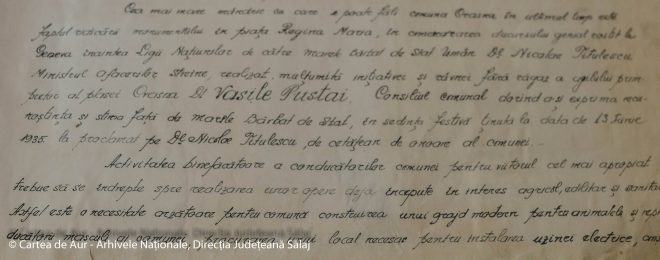 Cea mai mare mândrie cu care se poate făli comuna Crasna în ultimul timp este
faptul ridicării monumentului în piața Regina Maria, în comemorarea discursului genial rostit la
Geneva înaintea Ligii Națiunilor de către marele bărbat de Stat Român Dl. Nicolae Titulescu
Ministrul afacerilor streine, realizat, mulțumită inițiativei și râvnei fără răgaz a agilului prim
pretor al plasei Crasna Dl. Vasile Pustai. Consiliul comunal dorind a-și exprima recu-
noștința și stima față de marele Bărbat de Stat, în ședința festivă ținută la data de 13 Iunie
1935 l-a proclamat pe Dl. Nicolae Titulescu, de cetățean de onoare al comunei.-
Activitatea binefăcătoare a conducătorilor comunei pentru viitorul cel mai apropiat
trebue să se îndrepte spre realizarea unor opere deja începute în interes agricol, edilitar și sanitar
Astfel este o necesitate arzătoare pentru comună construirea unui grajd modern pentru animalele și repro-
ducătorii masculi ai comunei procurarea unui local necesar pentru instalarea uzinei electrice,
© Cartea de Aur - Arhivele Naționale, Direcția Județeană Sălaj